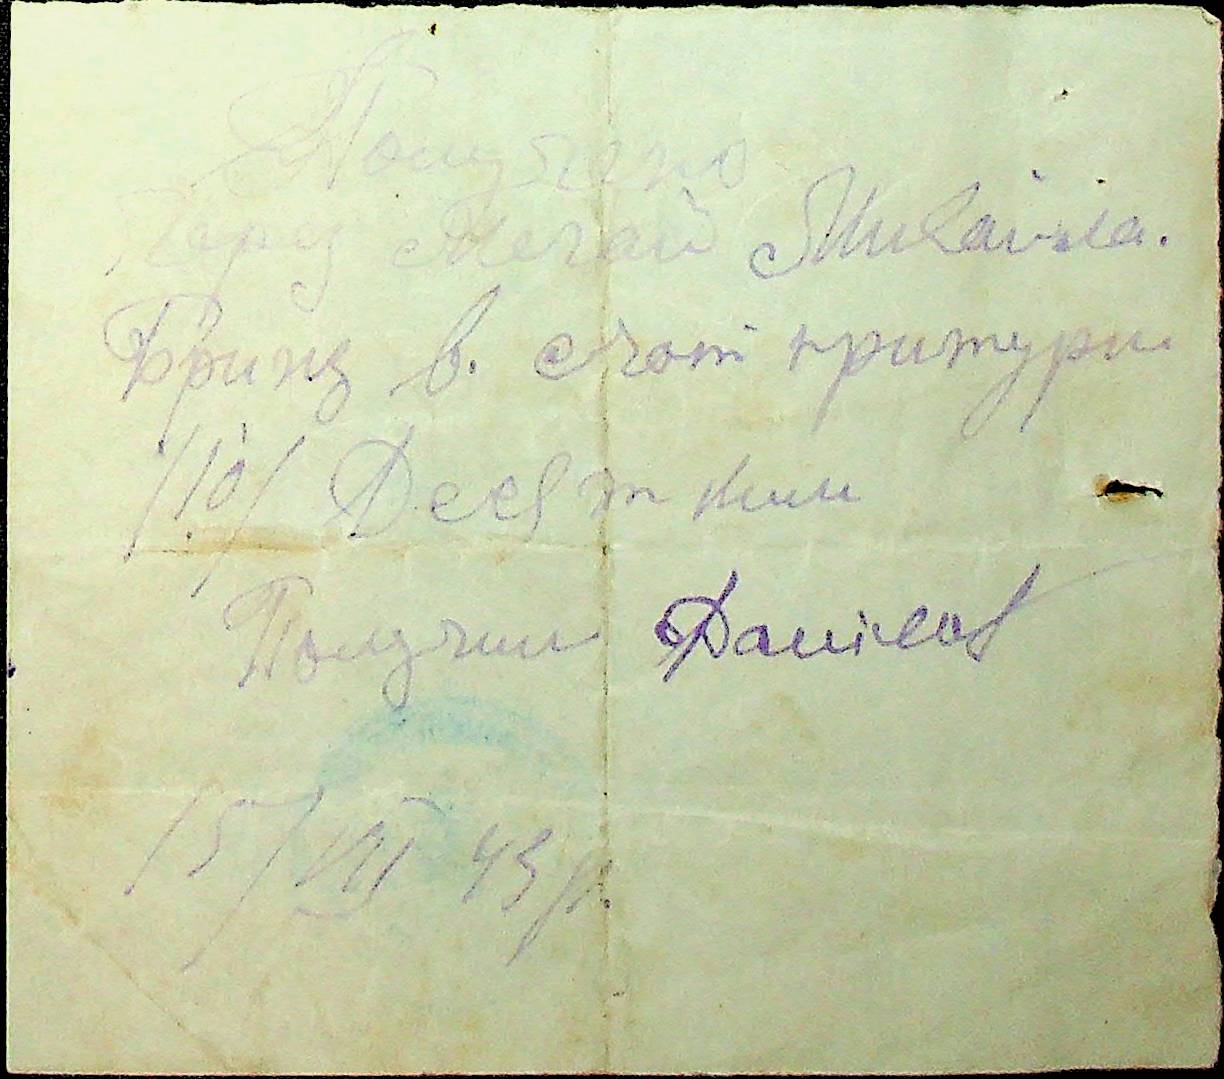 Получено
Через Мечай Михаила.
Принц в. счот притури
/10/ Десят кил
Получил Данілов
15/VII 43 р.